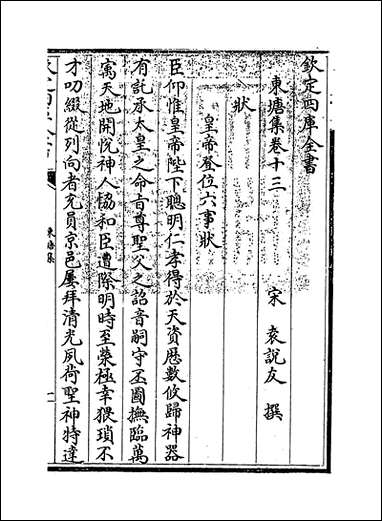 欽定四庫全書
東塘集卷十三
宋 袁說友 撰
狀
皇帝登位六事狀
臣仰惟皇帝陛下聰明仁孝得於天資歴數攸歸神器
有託承太皇之命音尊聖父之詔音嗣守丕圖撫臨萬
㝢天地開悦神人恊和臣遭際明時至榮極幸猥瑣不
才叨綴從列向者充員京邑屢拜清光夙荷聖神特達
東塘集
一